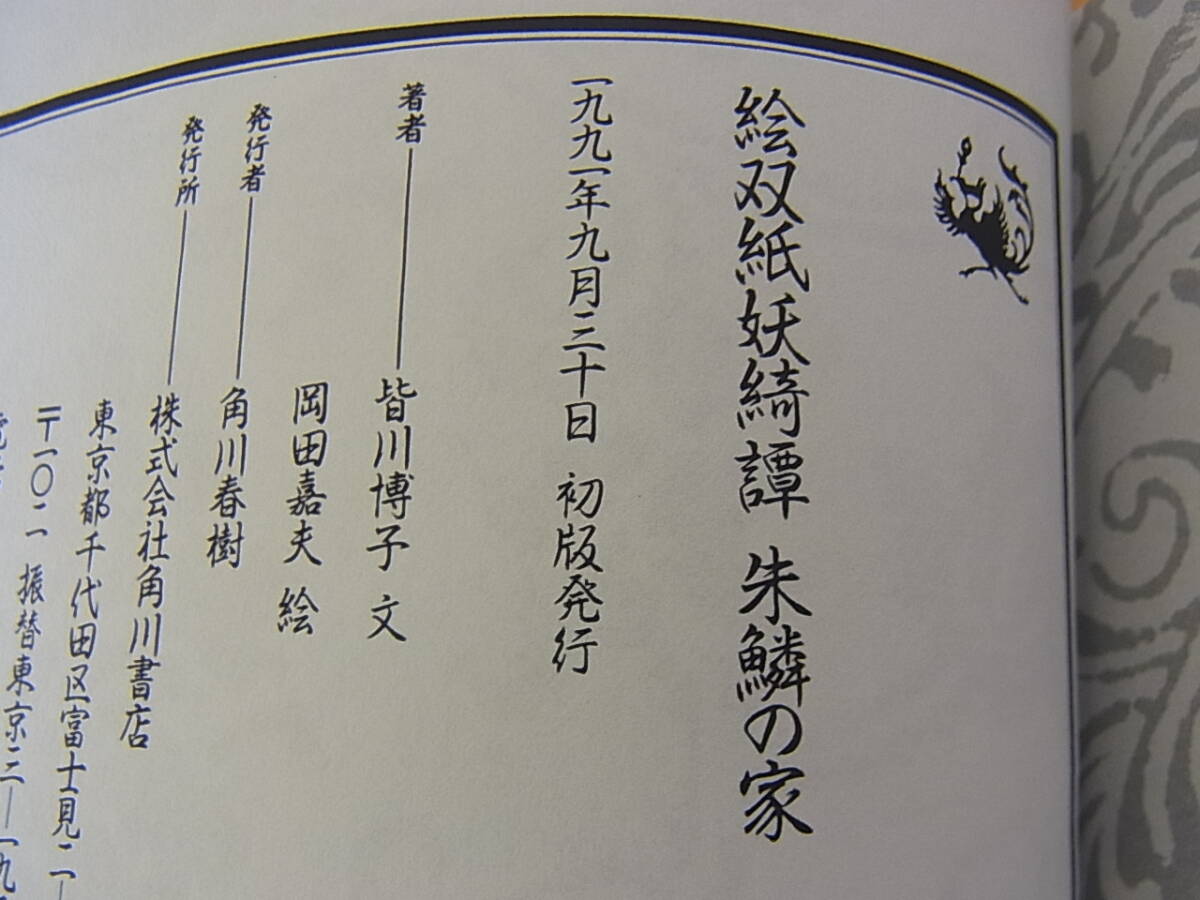 絵双紙妖綺譚 朱鱗の家
一九九一年九月三十日 初版発行
著者――皆川博子 文
岡田嘉夫 絵
発行者――角川春樹
発行所――株式会社角川書店
東京都千代田区富士見二―
〒一〇二 振替東京三―一九